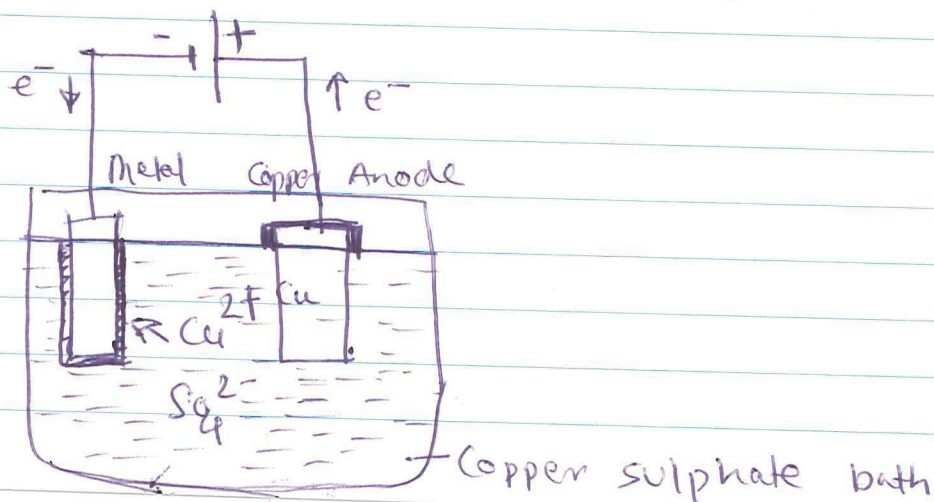 - +
e⁻ ↑ e⁻
Metal Copper Anode
Cu²⁺ Cu
SO₄²⁻
Copper sulphate bath